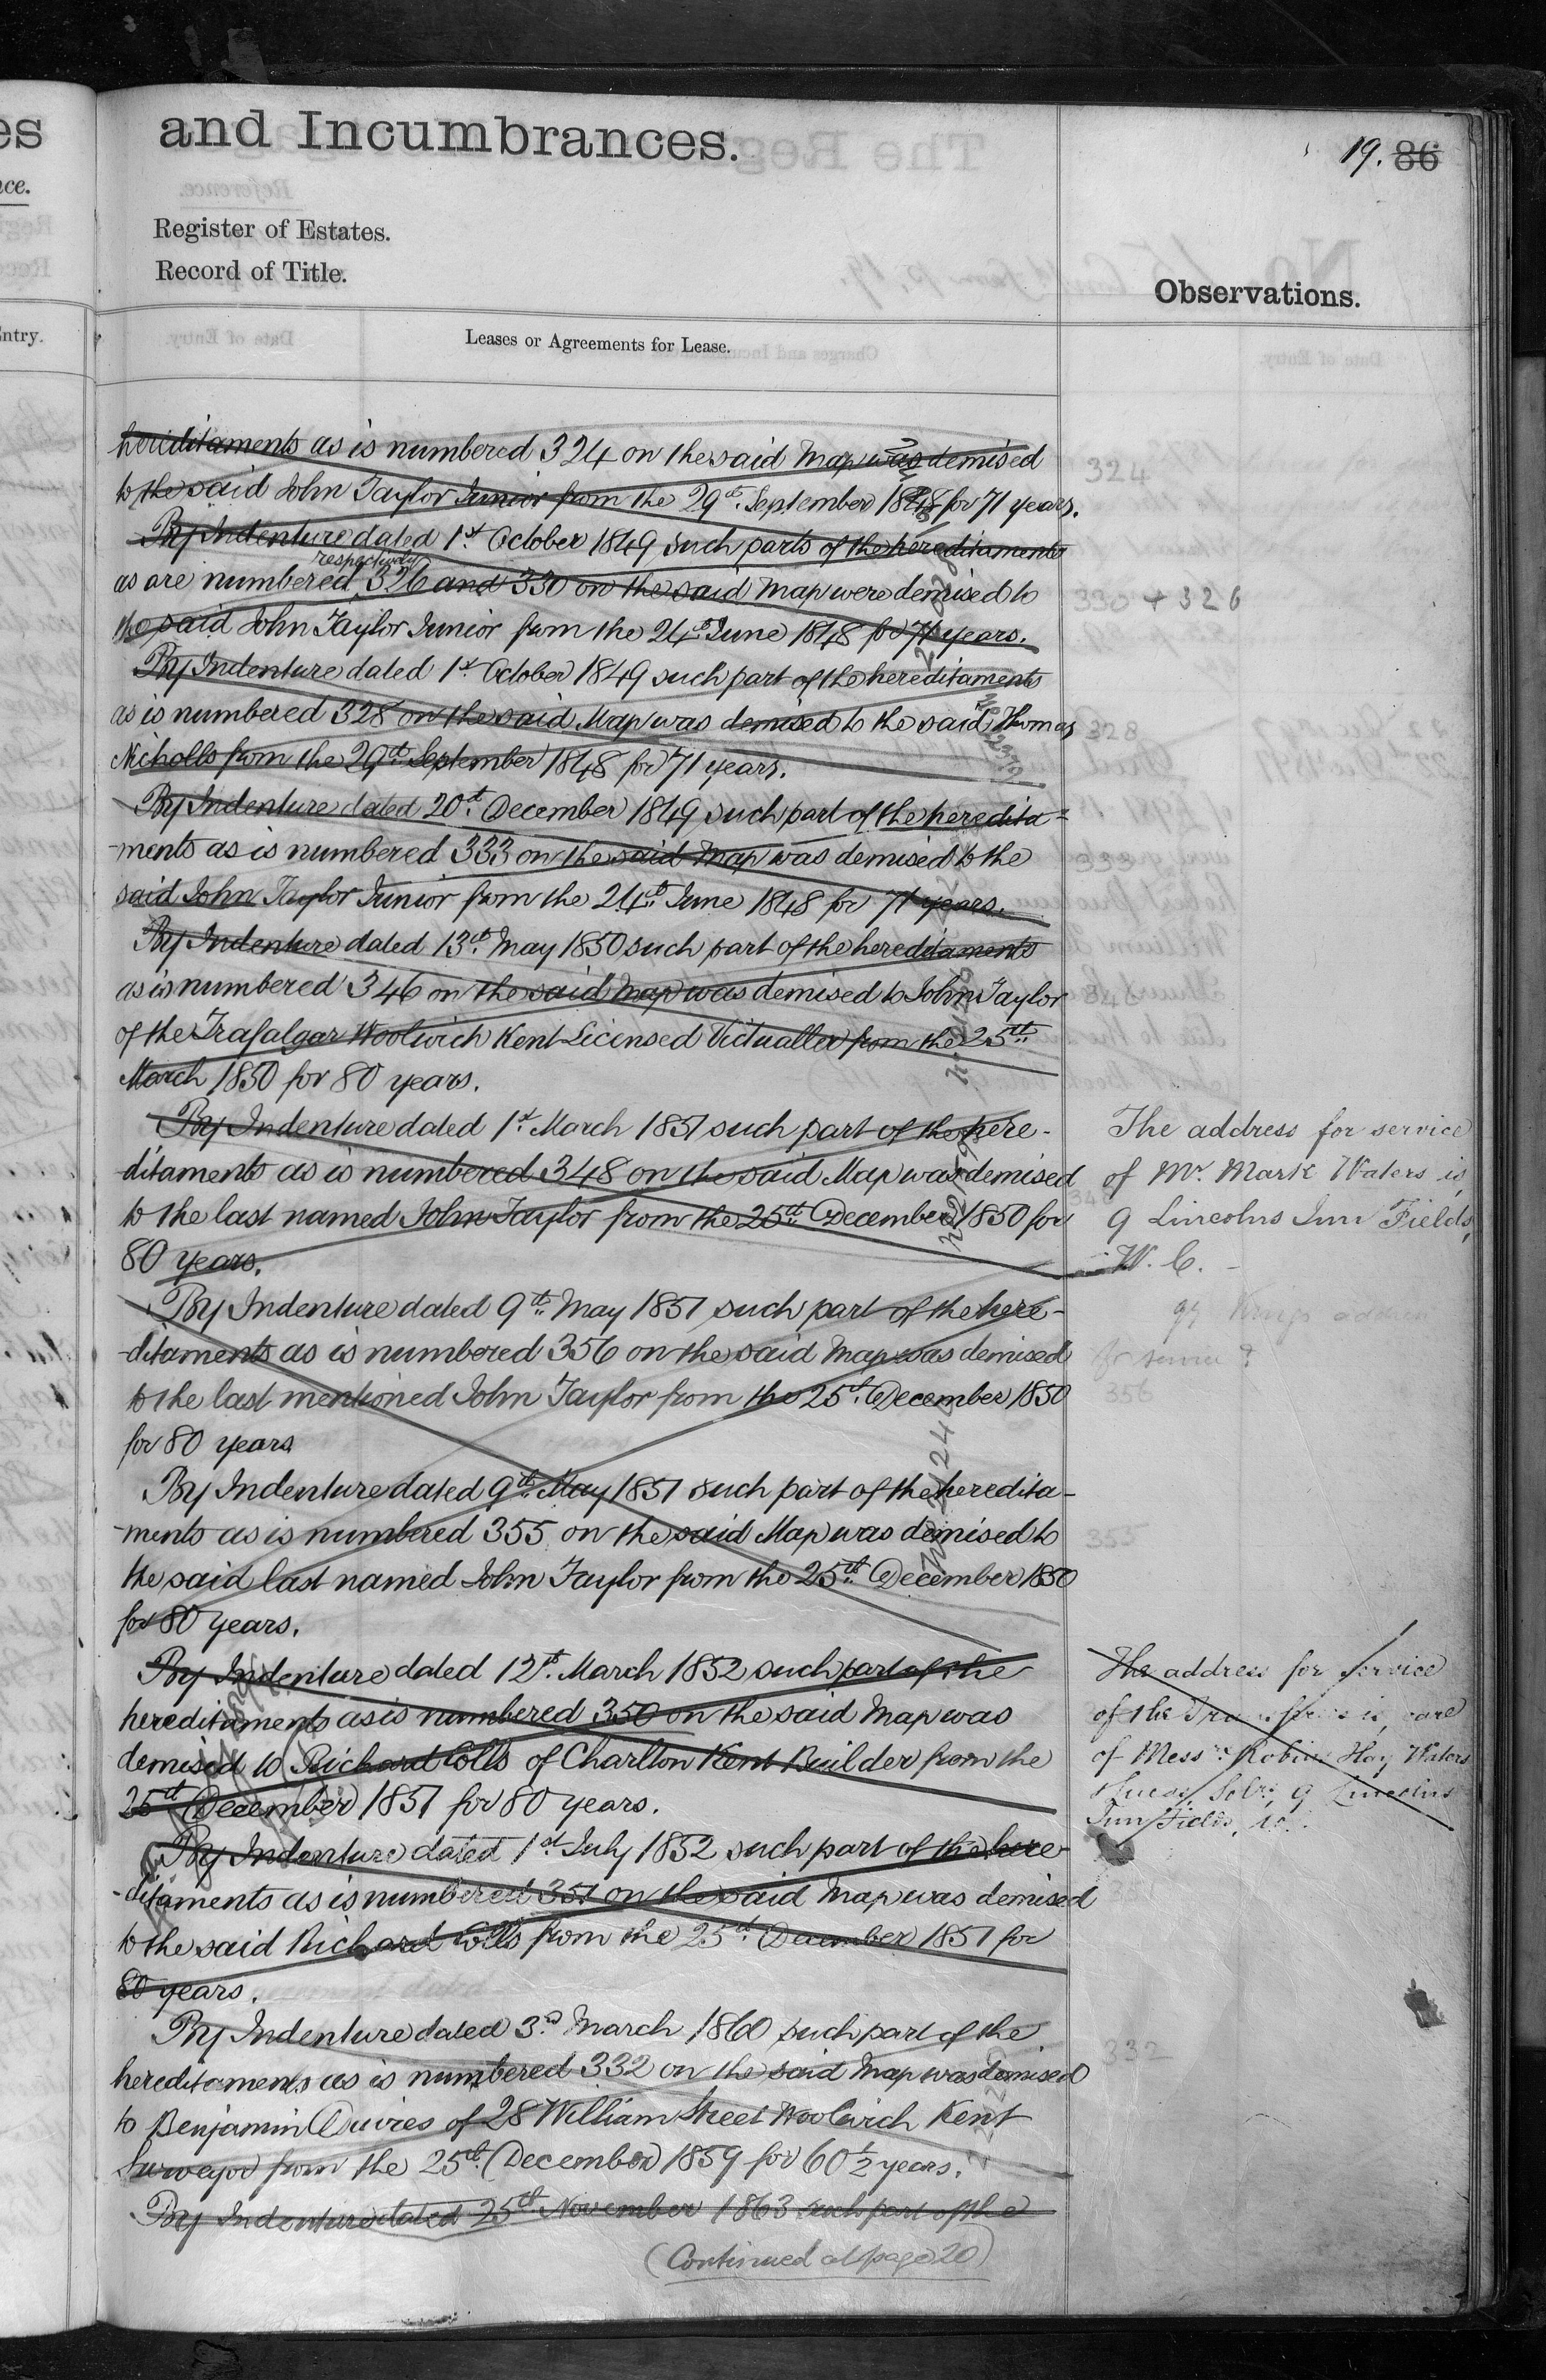 and Incumbrances.
19. 86
Register of Estates.
Record of Title.
Observations.
Leases or Agreements for Lease.
hereditaments as is numbered 324 on the said Map was demised
to the said John Taylor Junior from the 29th September 1848 for 71 years.
By Indenture dated 1st October 1849 such parts of the hereditaments
respectively
as are numbered 326 and 330 on the said Map were demised to
the said John Taylor Junior from the 24th June 1848 for 71 years.
By Indenture dated 1st October 1849 such part of the hereditaments
as is numbered 328 on the said Map was demised to the said Thomas
Nicholls from the 29th September 1848 for 71 years.
By Indenture dated 20th December 1849 such part of the heredita=
-ments as is numbered 333 on the said Map was demised to the
said John Taylor Junior from the 24th June 1848 for 71 years.
By Indenture dated 13th May 1850 such part of the hereditaments
as is numbered 346 on the said Map was demised to John Taylor
of the Trafalgar Woolwich Kent Licensed Victualler from the 25th
March 1850 for 80 years.
By Indenture dated 1st March 1851 such part of the here-
-ditaments as is numbered 348 on the said Map was demised
to the last named John Taylor from the 25th December 1850 for
80 years.
By Indenture dated 9th May 1851 such part of the here-
-ditaments as is numbered 356 on the said Map was demised
to the last mentioned John Taylor from the 25th December 1850
for 80 years
By Indenture dated 9th May 1851 such part of the heredita-
-ments as is numbered 355 on the said Map was demised to
the said last named John Taylor from the 25th December 1850
for 80 years.
By Indenture dated 12th March 1852 such part of the
hereditaments as is numbered 350 on the said Map was
demised to Richard Colls of Charlton Kent Builder from the
25th December 1851 for 80 years.
By Indenture dated 1st July 1852 such part of the here-
-ditaments as is numbered 351 on the said Map was demised
to the said Richard Colls from the 25th December 1851 for
80 years.
By Indenture dated 3rd March 1860 such part of the
hereditaments as is numbered 332 on the said Map was demised
to Benjamin Davies of 28 William Street Woolwich Kent
Surveyor from the 25th December 1859 for 60½ years.
By Indenture dated 25th November 1863 such part of the
(Continued at page 20)
324
330 + 326
328
333
346
348
The address for service
of Mr. Mark Waters is,
9 Lincolns Inn Fields,
W. C.
for service?
356
355
The address for service
of the is, care
of Messrs Robins Hay Waters
& Lucas, Solrs, 9 Lincolns
Inn Fields,
332